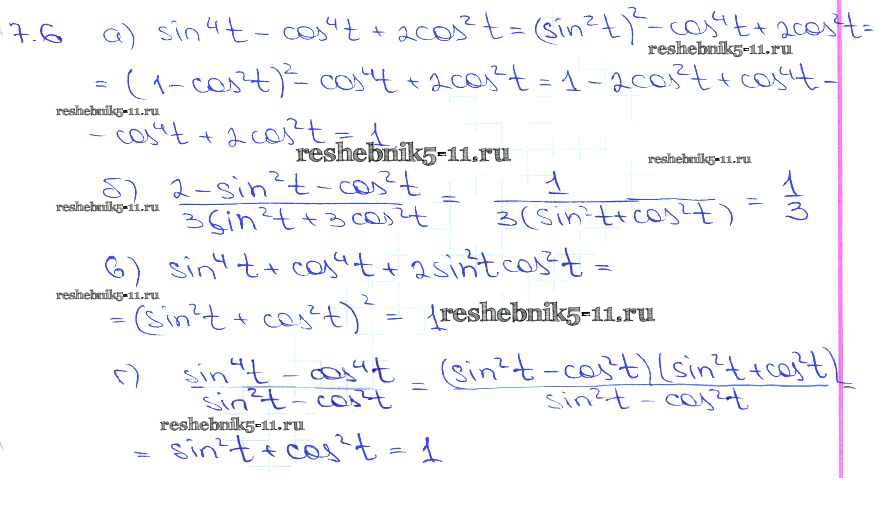 7.6 а) sin⁴t - cos⁴t + 2cos²t = (sin²t)² - cos⁴t + 2cos²t =
reshebnik5-11.ru
= (1 - cos²t)² - cos⁴t + 2cos²t = 1 - 2cos²t + cos⁴t -
reshebnik5-11.ru
- cos⁴t + 2cos²t = 1
reshebnik5-11.ru
reshebnik5-11.ru
б) (2 - sin²t - cos²t)/(3sin²t + 3cos²t) = 1/(3(sin²t + cos²t)) = 1/3
reshebnik5-11.ru
в) sin⁴t + cos⁴t + 2sin²t cos²t =
reshebnik5-11.ru
= (sin²t + cos²t)² = 1
reshebnik5-11.ru
г) (sin⁴t - cos⁴t)/(sin²t - cos²t) = ((sin²t - cos²t)(sin²t + cos²t))/(sin²t - cos²t) =
reshebnik5-11.ru
= sin²t + cos²t = 1